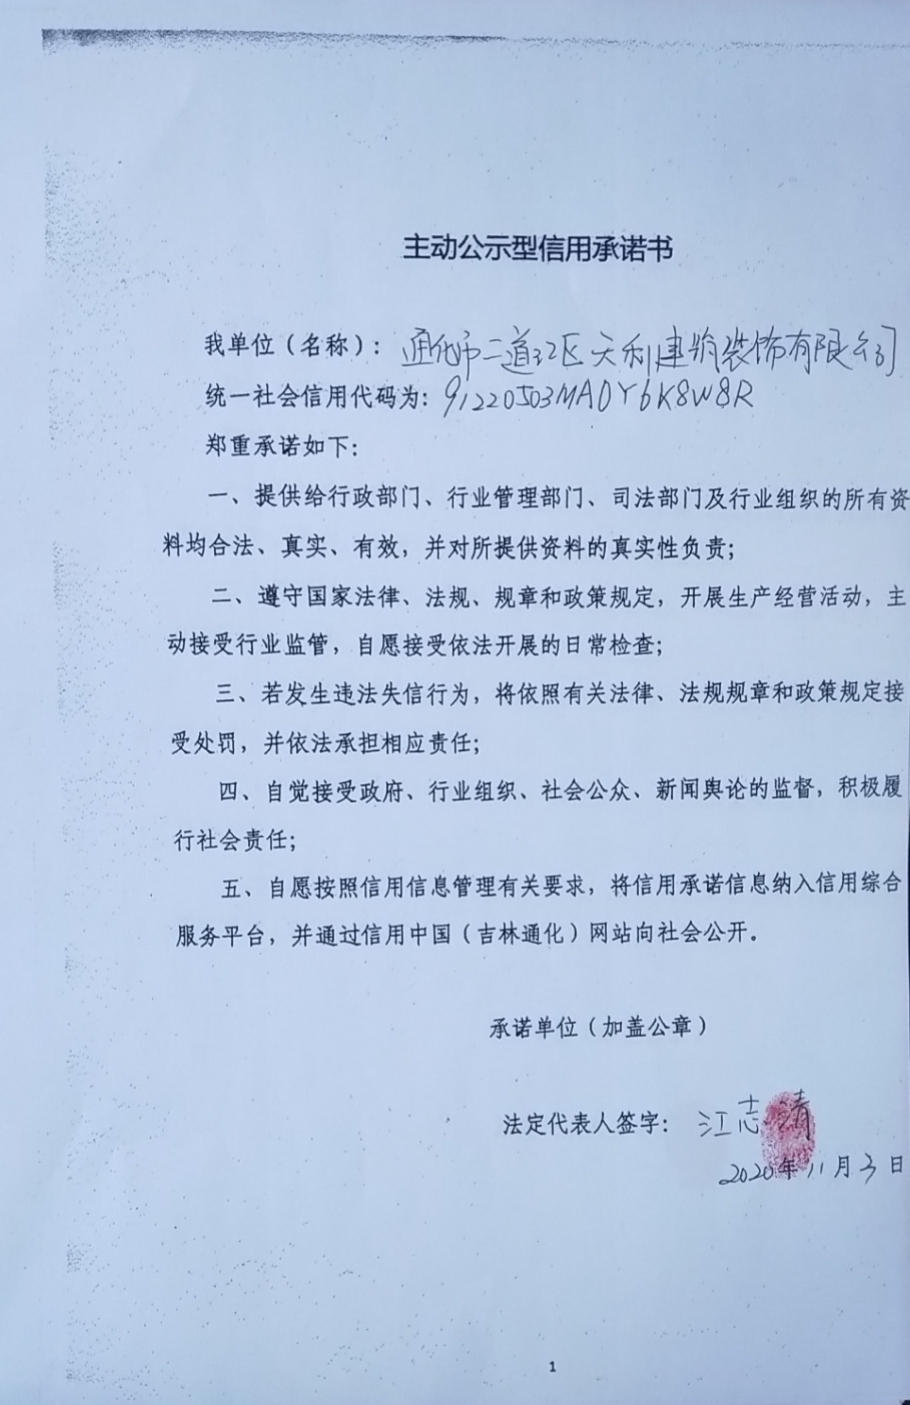 主动公示型信用承诺书
我单位（名称）：通化市二道江区天利建筑装饰有限公司
统一社会信用代码为：91220503MA0Y6K8W8R
郑重承诺如下：
一、提供给行政部门、行业管理部门、司法部门及行业组织的所有资
料均合法、真实、有效，并对所提供资料的真实性负责；
二、遵守国家法律、法规、规章和政策规定，开展生产经营活动，主
动接受行业监管，自愿接受依法开展的日常检查；
三、若发生违法失信行为，将依照有关法律、法规规章和政策规定接
受处罚，并依法承担相应责任；
四、自觉接受政府、行业组织、社会公众、新闻舆论的监督，积极履
行社会责任；
五、自愿按照信用信息管理有关要求，将信用承诺信息纳入信用综合
服务平台，并通过信用中国（吉林通化）网站向社会公开。
承诺单位（加盖公章）
法定代表人签字：江志清
2020年11月3日
1